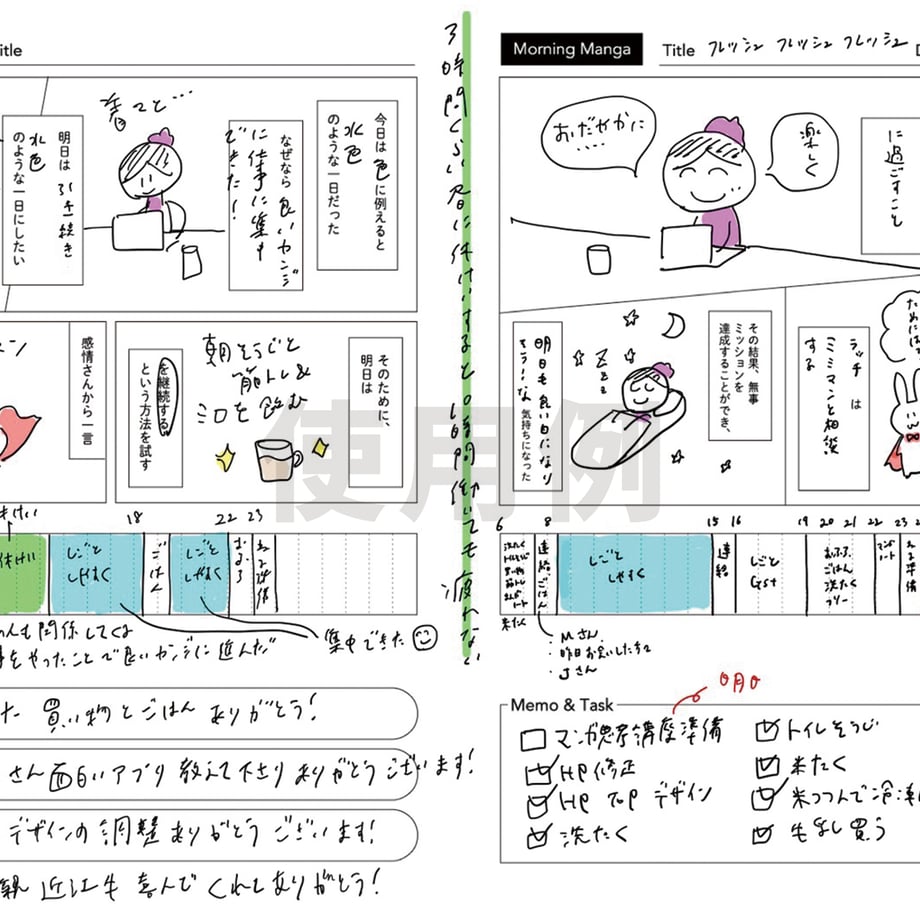 itle
今日は色に例えると
水色
のような一日だった
なぜなら 良いカンジ
に仕事に集中
できた！
さてと…
明日は 引き続き
水色
のような一日にしたい
そのために、
明日は
朝そうじと
筋トレ&
ミロを飲む
を継続する。
という方法を試す
感情さんから一言
18
22 23
しごと
しゃすく
ごはん
しごと
しゃすく
おふろ
ねる準備
集中できた
をやったことで良いカンジに進んだ
た 買い物とごはん ありがとう！
さん面白いアプリ教えて下さりありがとうございます！
デザインの調整ありがとうございます！
近江牛 喜んでくれてありがとう！
3時間ぐらい昼に休けいすると10時間働いても疲れない
Morning Manga
Title フレッシュ フレッシュ フレッシュ D
に過ごすこと
楽しく
おだやかに
‥‥
ために
ラッチ は
ミミマンと相談
する
その結果、無事
ミッションを
達成することができ、
Zzz
明日も良い日になり
そう！な 気持ちになった
使用例
6 8 15 16 19 20 21 22 23
連絡
ごはん
しごと
しゃすく
連絡
しごと
Gst
おふろ
ごはん
洗たく
フリー
ねる準備
米たく
・Mさん
・Jさん
〇月〇
Memo & Task
マンガ思考講座準備
HP修正
HP TOP デザイン
洗たく
トイレそうじ
米たく
米つつんで冷凍
生ハム買う